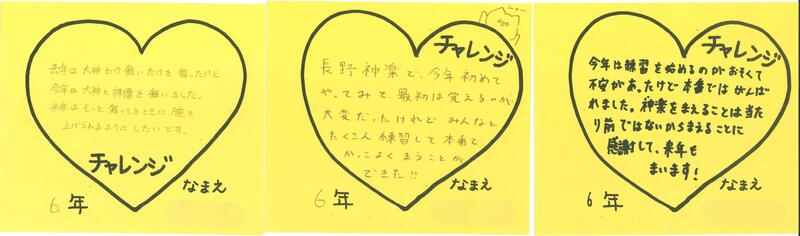 去年は大神という舞いだけを舞ったけど
今年は大神と神僧を舞いました。
来年はもっと舞ってるときに腕を
上げられるようにしたいです。
チャレンジ
6年
なまえ
チャレンジ
長野神楽で、今年初めて
やってみて、最初は覚えるのが
大変だったけれどみんなと
たくさん練習して本番で
かっこよくまうことが
できた!!
6年
なまえ
チャレンジ
今年は練習を始めるのがおそくて
不安があったけど本番ではがんば
れました。神楽をまえることは当た
り前ではないからまえることに
感謝して、来年も
まいます!
6年
なまえ